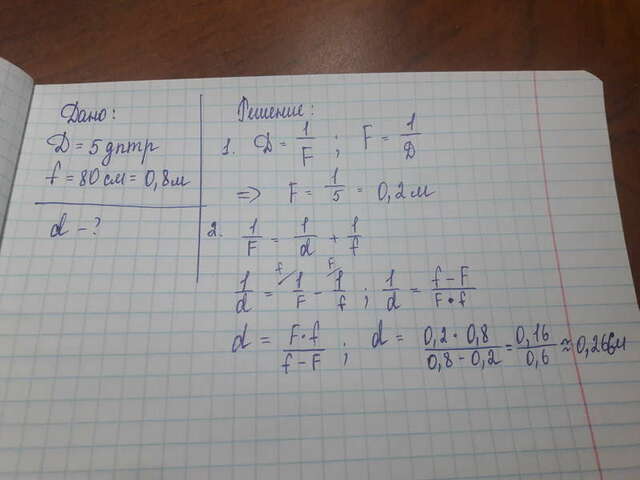 Дано:
D = 5 дптр
f = 80 см = 0,8 м
d - ?
Решение:
1. D = 1/F ; F = 1/D
=> F = 1/5 = 0,2 м
2. 1/F = 1/d + 1/f
1/d = 1/F - 1/f ; 1/d = f-F/F•f
d = F•f/f-F ; d = 0,2•0,8/0,8-0,2 = 0,16/0,6 ≈ 0,26